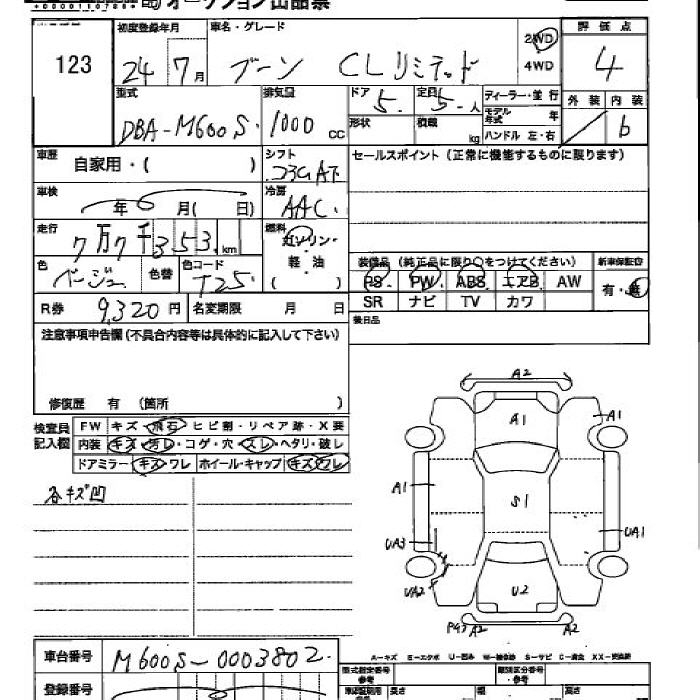 オークション出品票
123
初度登録年月 車名・グレード 2WD 4WD 評価点
24 7月 ブーン CLリミテッド 4
型式 排気量 ドア 定員 ディーラー・並行 外装 内装
DBA-M600S 1000 cc 5 5人 モデル年式 年 b
形状 積載 kg ハンドル 左・右
車歴 自家用・( ) シフト セールスポイント(正常に機能するものに限ります)
車検 年 月( 日) 冷房 AAC
走行 7万7千353 km 燃料 ガソリン・軽・油 ( )
装備品(純正品に限り○をつけてください) 新車保証書
色 ベージュ 色替 色コード T25
PS PW ABS エアB AW 有・無
SR ナビ TV カワ
R券 9,320円 名変期限 月 日
後日品
注意事項申告欄(不具合内容等は具体的に記入して下さい)
修復歴 有 (箇所 )
検査員記入欄
FW キズ・飛石・ヒビ割・リペア跡・X要
内装 キズ・汚レ・コゲ・穴・スレ・ヘタリ・破レ
ドアミラー キズ・ワレ ホイール・キャップ キズ・ワレ
各キズ凹
A2
A1
A1
A1
S1
UA3
UA1
UA2
U2
A2
A2
A-キズ E-エクボ U-凹み W-補修跡 S-サビ C-腐食 XX-交換済
車台番号 M600S-0003802
登録番号
型式指定番号 参考 類別区分番号 参考
長さ 幅 高さ